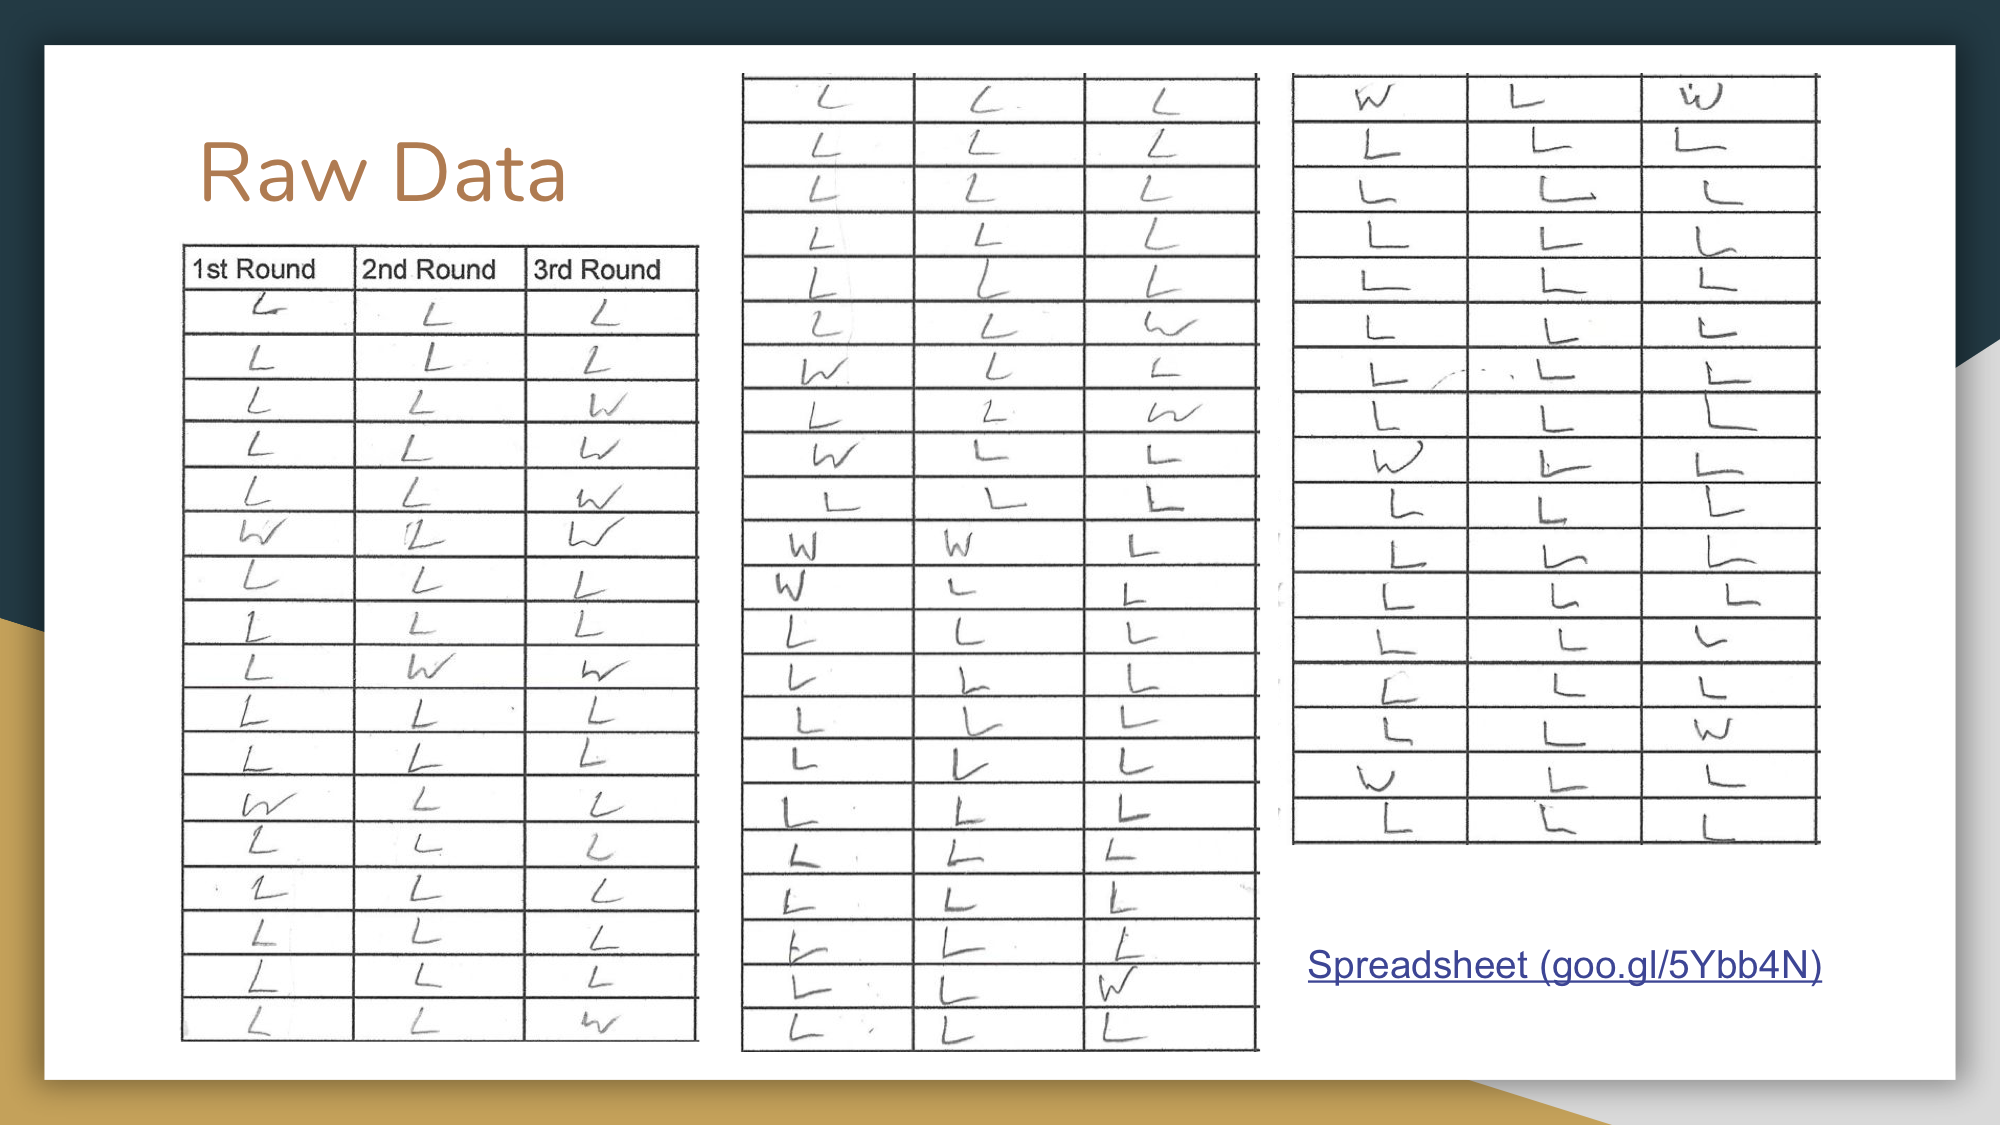 Raw Data
1st Round 2nd Round 3rd Round
L L L
L L L
L L W
L L W
L L W
W L W
L L L
L L L
L W W
L L L
L L L
W L L
L L L
L L L
L L L
L L L
L L W
L L L
L L L
L L L
L L L
L L L
L L W
W L L
L L W
W L L
L L L
W W L
W L L
L L L
L L L
L L L
L L L
L L L
L L L
L L L
L L L
L L W
L L L
W L W
L L L
L L L
L L L
L L L
L L L
L L L
L L L
W L L
L L L
L L L
L L L
L L L
L L L
L L W
W L L
L L L
Spreadsheet (goo.gl/5Ybb4N)